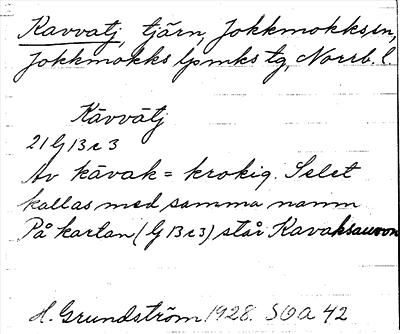 Kavvatj, tjärn, Jokkmokks sn,
Jokkmokks lpmks tg, Norrb. l.
Kāvvātj
21 G 13 c 3
Av kāvak = krokig. Selet
kallas med samma namn
På kartan (G 13 c 3) står Kavaksauvon
H. Grundström 1928. SOA 42